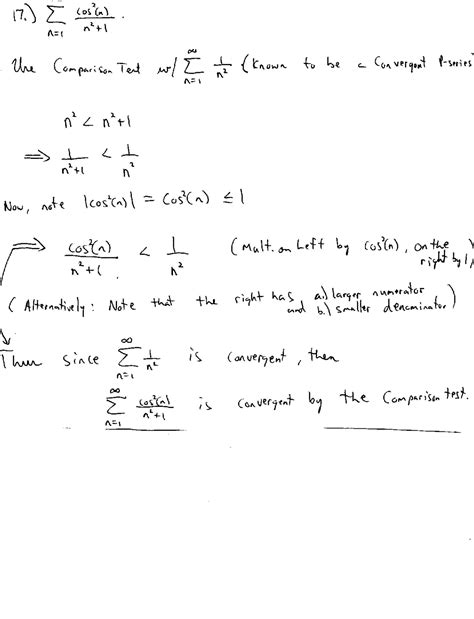 17.) ∑ n=1 cos²(n) / n²+1 .
Use Comparison Test w/ ∞ ∑ n=1 1/n² (Known to be a Convergent P-series
n² < n²+1
⇒ 1/n²+1 < 1/n²
Now, note |cos²(n)| = Cos²(n) ≤ 1
⇒ cos²(n) / n²+1 < 1/n² (Mult. on Left by cos²(n), on the right by 1)
( Alternatively: Note that the right has a.) larger numerator and b.) smaller denominator )
Thus since ∞ ∑ n=1 1/n² is convergent, then
∞ ∑ n=1 cos²(n) / n²+1 is convergent by the Comparison test.